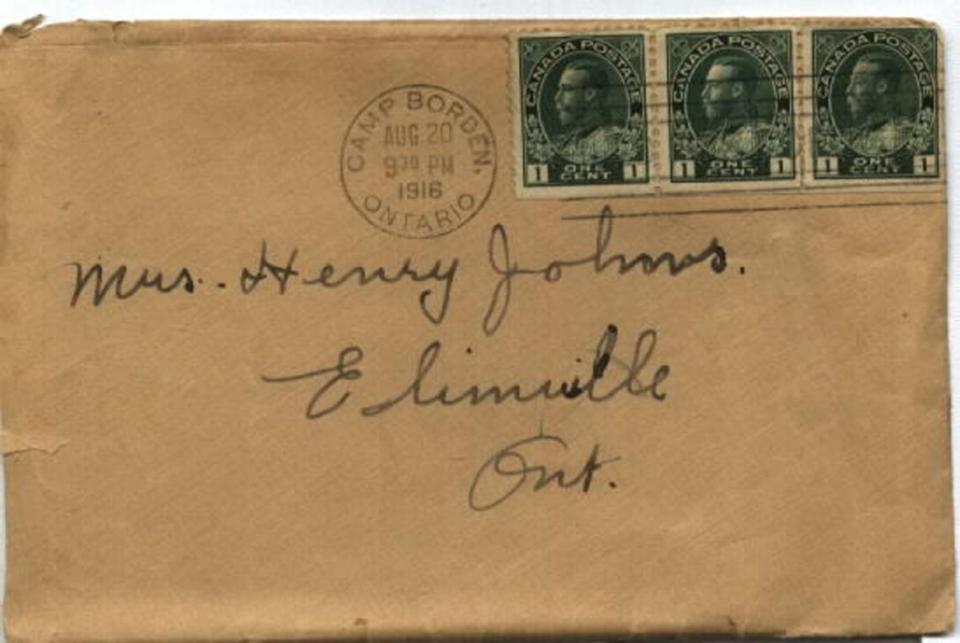 CANADA POSTAGE
1 ONE CENT 1
CANADA POSTAGE
1 ONE CENT 1
CANADA POSTAGE
1 ONE CENT 1
CAMP BORDEN,
AUG 20
9 30 PM
1916
ONTARIO
Mrs. Henry Johns.
Elimville
Ont.